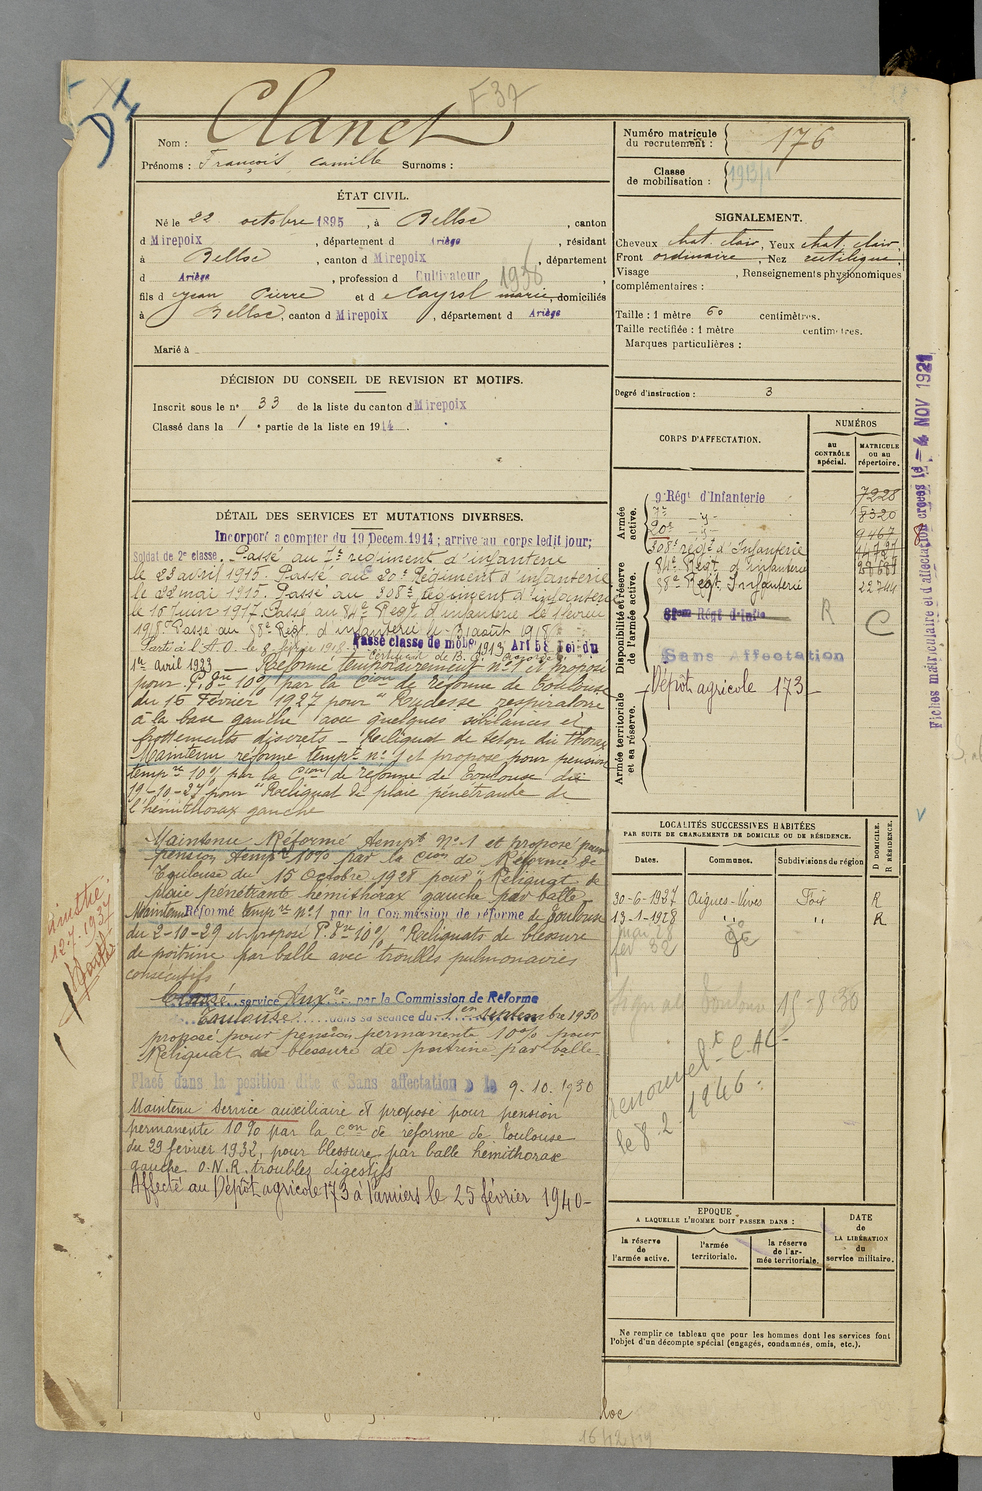 F 37
DI
Nom : Clanet
Prénoms : François Camille Surnoms :
Numéro matricule du recrutement : 176
Classe de mobilisation : 1913/1
ÉTAT CIVIL.
Né le 22 octobre 1895, à Belloc, canton
d Mirepoix, département d Ariège, résidant
à Belloc, canton d Mirepoix, département
d Ariège, profession d Cultivateur
1936
fils d Jean Pierre et d Cayrol marie, domiciliés
à Belloc, canton d Mirepoix, département d Ariège
Marié à
DÉCISION DU CONSEIL DE REVISION ET MOTIFS.
Inscrit sous le n° 33 de la liste du canton d Mirepoix
Classé dans la 1e partie de la liste en 1914.
SIGNALEMENT.
Cheveux chat. clair, Yeux chat. clair,
Front ordinaire, Nez rectiligne,
Visage , Renseignements physionomiques
complémentaires :
Taille : 1 mètre 60 centimètres.
Taille rectifiée : 1 mètre centimètres.
Marques particulières :
Degré d'instruction : 3
DÉTAIL DES SERVICES ET MUTATIONS DIVERSES.
Incorporé a compter du 19 Décem. 1914 ; arrivé au corps ledit jour;
Soldat de 2e classe. Passé au 7e régiment d'infanterie
le 23 avril 1915. Passé au 20e Régiment d'infanterie
le 22 mai 1915. Passé au 308e Régiment d'infanterie
le 16 Juin 1917. Passé au 84e Régt d'infanterie le février
1918. Passé au 38e Régt. d'infanterie le 31 août 1918
Parti à l'A. O. le 8 février 1918.
Passé classe de mobe 1913 Art 58 Loi du
1er avril 1923 — Réformé temporairement n° 1 et proposé
pour P. 10% par la Cion de réforme de Toulouse
du 15 Février 1927 pour "Rudesse respiratoire
à la base gauche avec quelques sibilances et
frottements discrets – Reliquat de séton du thorax
Maintenu réformé tempre n° 1 et proposé pour pension
tempre 10% par la Cion de réforme de Toulouse du
19-10-27 pour "Reliquat de plaie pénétrante de
l'hémithorax gauche
Maintenu Réformé tempre N° 1 et proposé pour
pension tempre 10% par la Cion de Réforme de
Toulouse du 15 Octobre 1928 pour "Reliquat de
plaie pénétrante hémithorax gauche par balle
Maintenu Réformé tempre n° 1 par la Commission de réforme de Toulouse
du 2-10-29 et proposé P. 10% "Reliquats de blessure
de poitrine par balle avec troubles pulmonaires
consécutifs
Classé service Auxre par la Commission de Réforme
de Toulouse dans sa séance du 1er septembre 1930
proposé pour pension permanente 10% pour
Reliquat de blessure de poitrine par balle.
Placé dans la position dite « Sans affectation » le 9.10.1930
Maintenu Service auxiliaire et proposé pour pension
permanente 10% par la Cion de réforme de Toulouse
du 29 février 1932, pour blessure par balle hémithorax
gauche O.N.R. troubles digestifs
Affecté au Dépôt agricole 173 à Pamiers le 25 février 1940 –
CORPS D'AFFECTATION.
NUMÉROS
au CONTRÔLE spécial.
MATRICULE ou au répertoire.
Armée active.
9 Régt d'Infanterie 7228
7e —y— 8320
20e —y— 9467
308e régt d'Infanterie
Disponibilité et réserve de l'armée active.
84e Régt d'infanterie
38e Régt Infanterie 22744
Régt d'Infie
R C
Sans Affectation
Armée territoriale et sa réserve.
Dépôt agricole 173 –
4 NOV 1921
LOCALITÉS SUCCESSIVES HABITÉES
PAR SUITE DE CHANGEMENTS DE DOMICILE OU DE RÉSIDENCE.
Dates. Communes. Subdivisions de région
D DOMICILE. R RÉSIDENCE.
30-6-1927 Aigues-Vives Foix R
13-1-1928 " " R
mai 28 do
fév 32 do
Signalé Toulouse 15-8-30
renouvelé
le 8.2.1946
EPOQUE
A LAQUELLE L'HOMME DOIT PASSER DANS :
la réserve de l'armée active.
l'armée territoriale.
la réserve de l'armée territoriale.
DATE de LA LIBÉRATION du service militaire.
Ne remplir ce tableau que pour les hommes dont les services font
l'objet d'un décompte spécial (engagés, condamnés, omis, etc.).
16/12/19